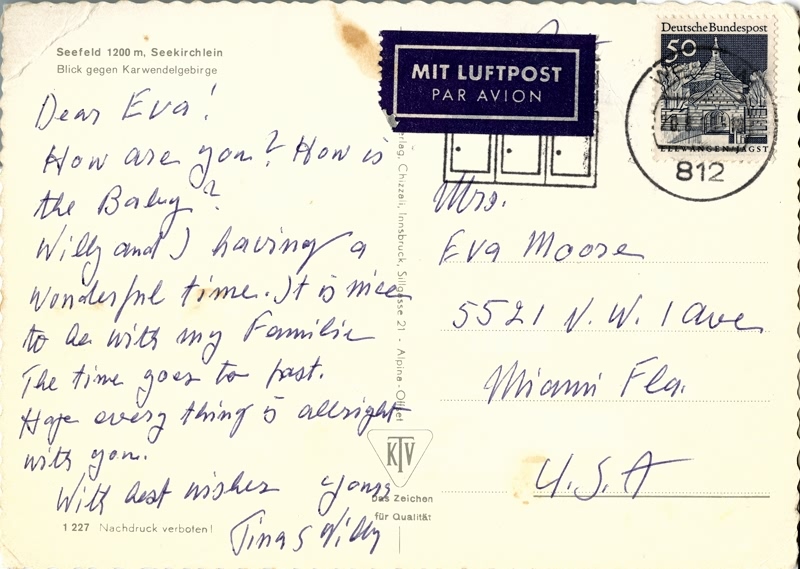 Seefeld 1200 m, Seekirchlein
Blick gegen Karwendelgebirge
Dear Eva!
How are you? How is
the Baby?
Willy and I having a
wonderful time. It is nice
to be with my Familie
The time goes to fast.
Hope every thing is allright
with you.
With best wishes yours
Tina & Willy
1 227 Nachdruck verboten!
erlag, Chizzali, Innsbruck, Sillgasse 21 - Alpina-Offset
KTV
Das Zeichen
für Qualität
MIT LUFTPOST
PAR AVION
Deutsche Bundespost
50
ELLWANGEN/JAGST
812
Mrs.
Eva Moore
5521 N.W. 1 Ave
Miami Fla.
U.S.A